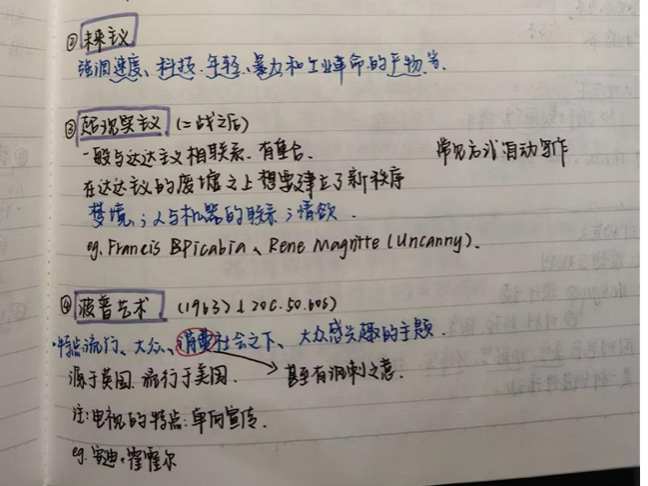 ② 未来主义
强调速度、科技、年轻、暴力和工业革命的产物等.
③ 超现实主义 (二战之后)
一般与达达主义相联系. 有重合. 常见方法:自动写作
在达达主义的废墟之上想要建立了新秩序
梦境,;人与机器的联系;情欲.
eg. Francis BPicabia、Rene Magritte (Uncanny)、
④ 波普艺术 (1963) (20C.50.60s)
·特点流行、大众、消费社会之下、大众感兴趣的主题.
源于英国. 流行于美国. 甚至有讽刺之意.
注:电视的特点:单向宣传.
eg. 安迪·霍霍尔